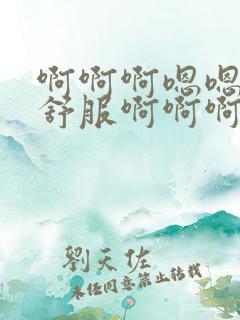 啊啊啊嗯嗯
舒服啊啊啊
劉天佐
未经同意禁止转载